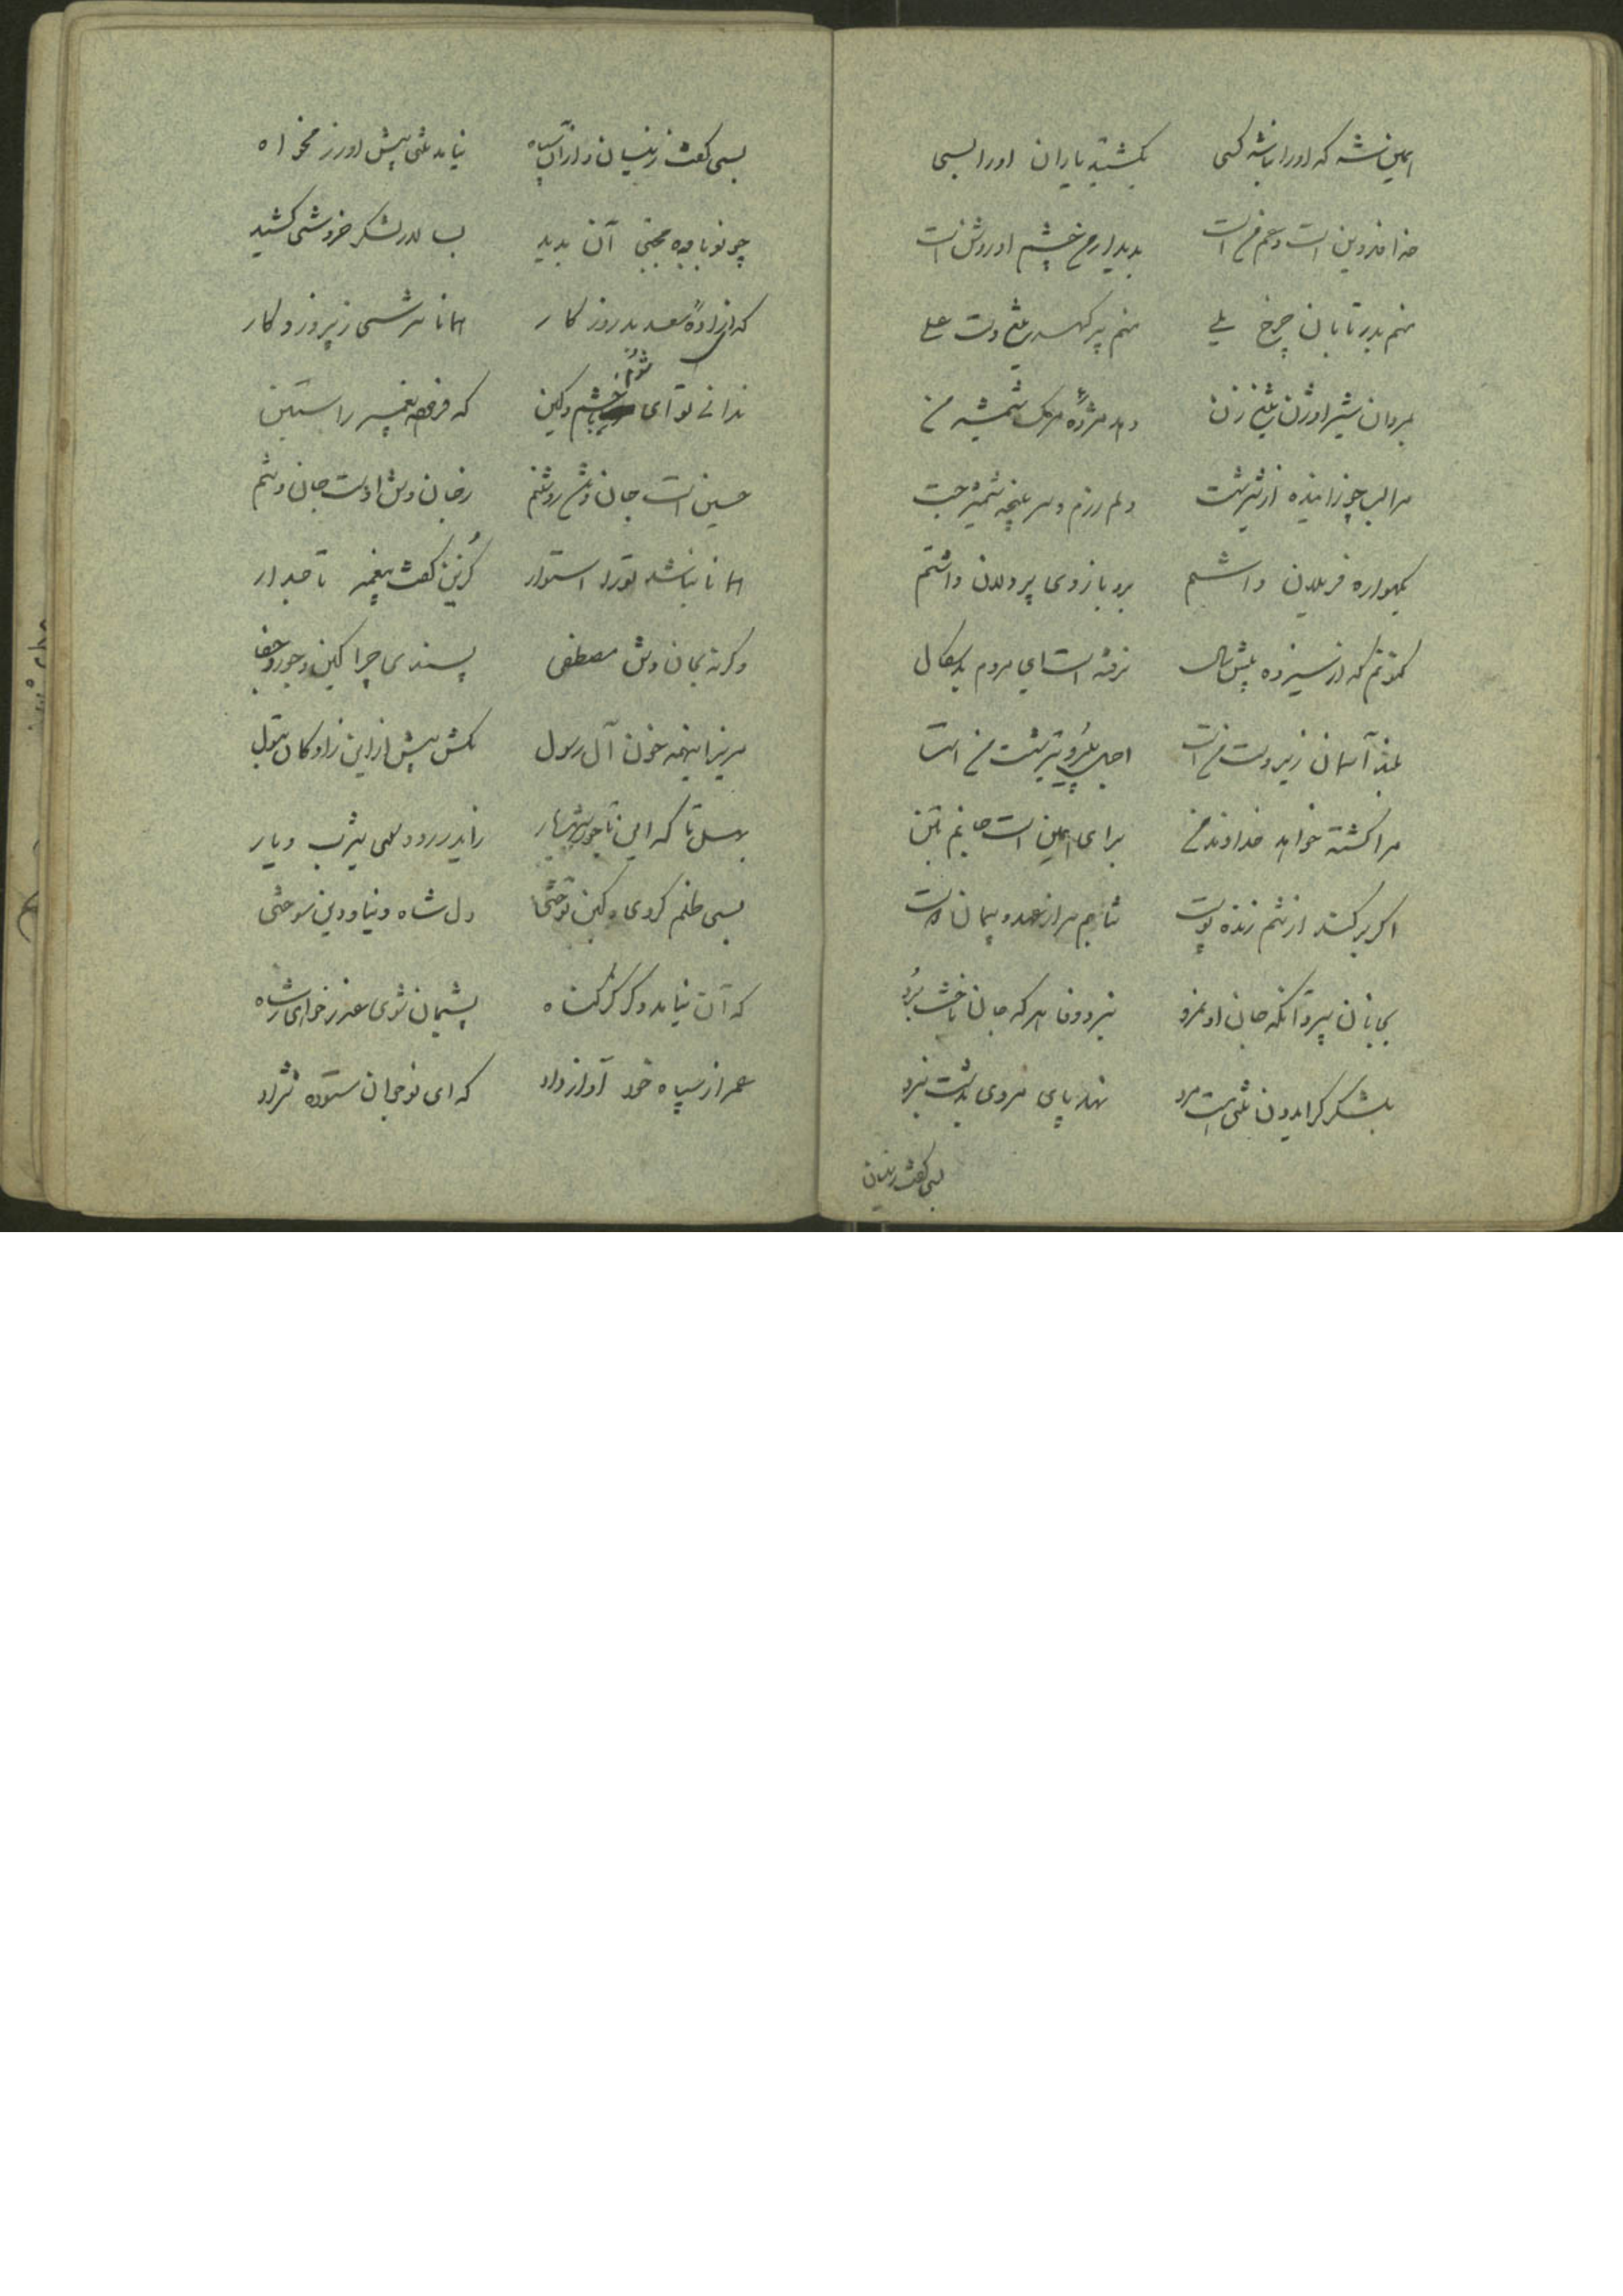 همین شه که او را نباشد کسی بکشتید یاران او را بسی
خداوند دین است و عم من است بدیدار من چشم او روشن است
منم بدر تابان چرخ یلی منم پر گهر تیغ دست علی
بمردان شیر اوژن تیغ زن دهد مژده مرگ شمشیر من
مرا لب چو زاینده از شیر شست دلم رزم و سر پنجه شمشیر جست
بگهواره در بدان داشتم بر و بازوی پر دلان داشتم
کنونم که از سیزده بیش سال نرفته است ای مردم بدسگال
بلند آسمان زیر دست من است اجل پیرو تیر شست من است
مرا کشته خواهد خداوند من برای همین است جانم بتن
اگر بر کشد از تنم زنده پوست نتابم سر از عهد و پیمان دوست
بجانان سپرد آنکه جان او نمرد نبرد وفا هر که جان باخت برد
بلشکر گر ایدون تنی هست مرد نهد پای مردی بدشت نبرد
بسی گفت زینسان
بسی گفت زینسان و از آن سپاه نیامد تنی پیش او رزمخواه
چو نوباوه مجتبی آن بدید بسالار لشکر خروشی کشید
که ای زاده سعد بد روزگار همانا نترسی ز پروردگار
ندانی تو ای شوم خشم و کین که فرخ پیمبر راستین
حسین است جان و تن روشنم ز جان و تن اوست جان و تنم
همانا نباشد تو را استوار کزین گفت پیغمبر تاجدار
وگرنه بجان و تن مصطفی پسندی چرا کین و جور و جفا
مریز اینهمه خون آل رسول مکش بیش از این زادگان بتول
بهل تا که این تاجور شهریار زایدر رود سوی یثرب دیار
بسی ظلم کردی و کین توختی دل شاه دنیا و دین سوختی
که آن نیاید دگر گر گناه پشیمان شوی عذر خواهی ز شاه
عمر از سپاه خود آواز داد که ای نوجوان ستوده نژاد